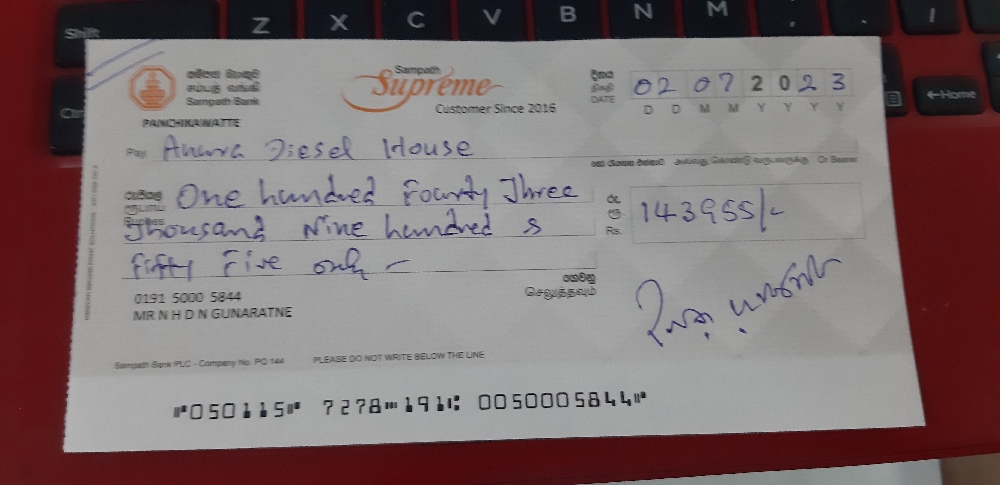 Shift Z X C V B N M
Ctrl
←Home
සම්පත් බැංකුව
சம்பத் வங்கி
Sampath Bank
PANCHIKAWATTE
Sampath
Supreme
Customer Since 2016
දිනය
திகதி
DATE
02 07 2023
D D M M Y Y Y Y
Pay Anura Diesel House
Or Bearer
රුපියල්
ரூபாய்
Rupees
One hundred Fourty Three
Thousand Nine hundred &
fifty Five only –
රු.
ரூ.
Rs.
143955/-
ගෙවනු
செலுத்தவும்
0191 5000 5844
MR N H D N GUNARATNE
Sampath Bank PLC - Company No. PQ 144 PLEASE DO NOT WRITE BELOW THE LINE
⑈050115⑈ 7278⑉191⑆ 0050005844⑈